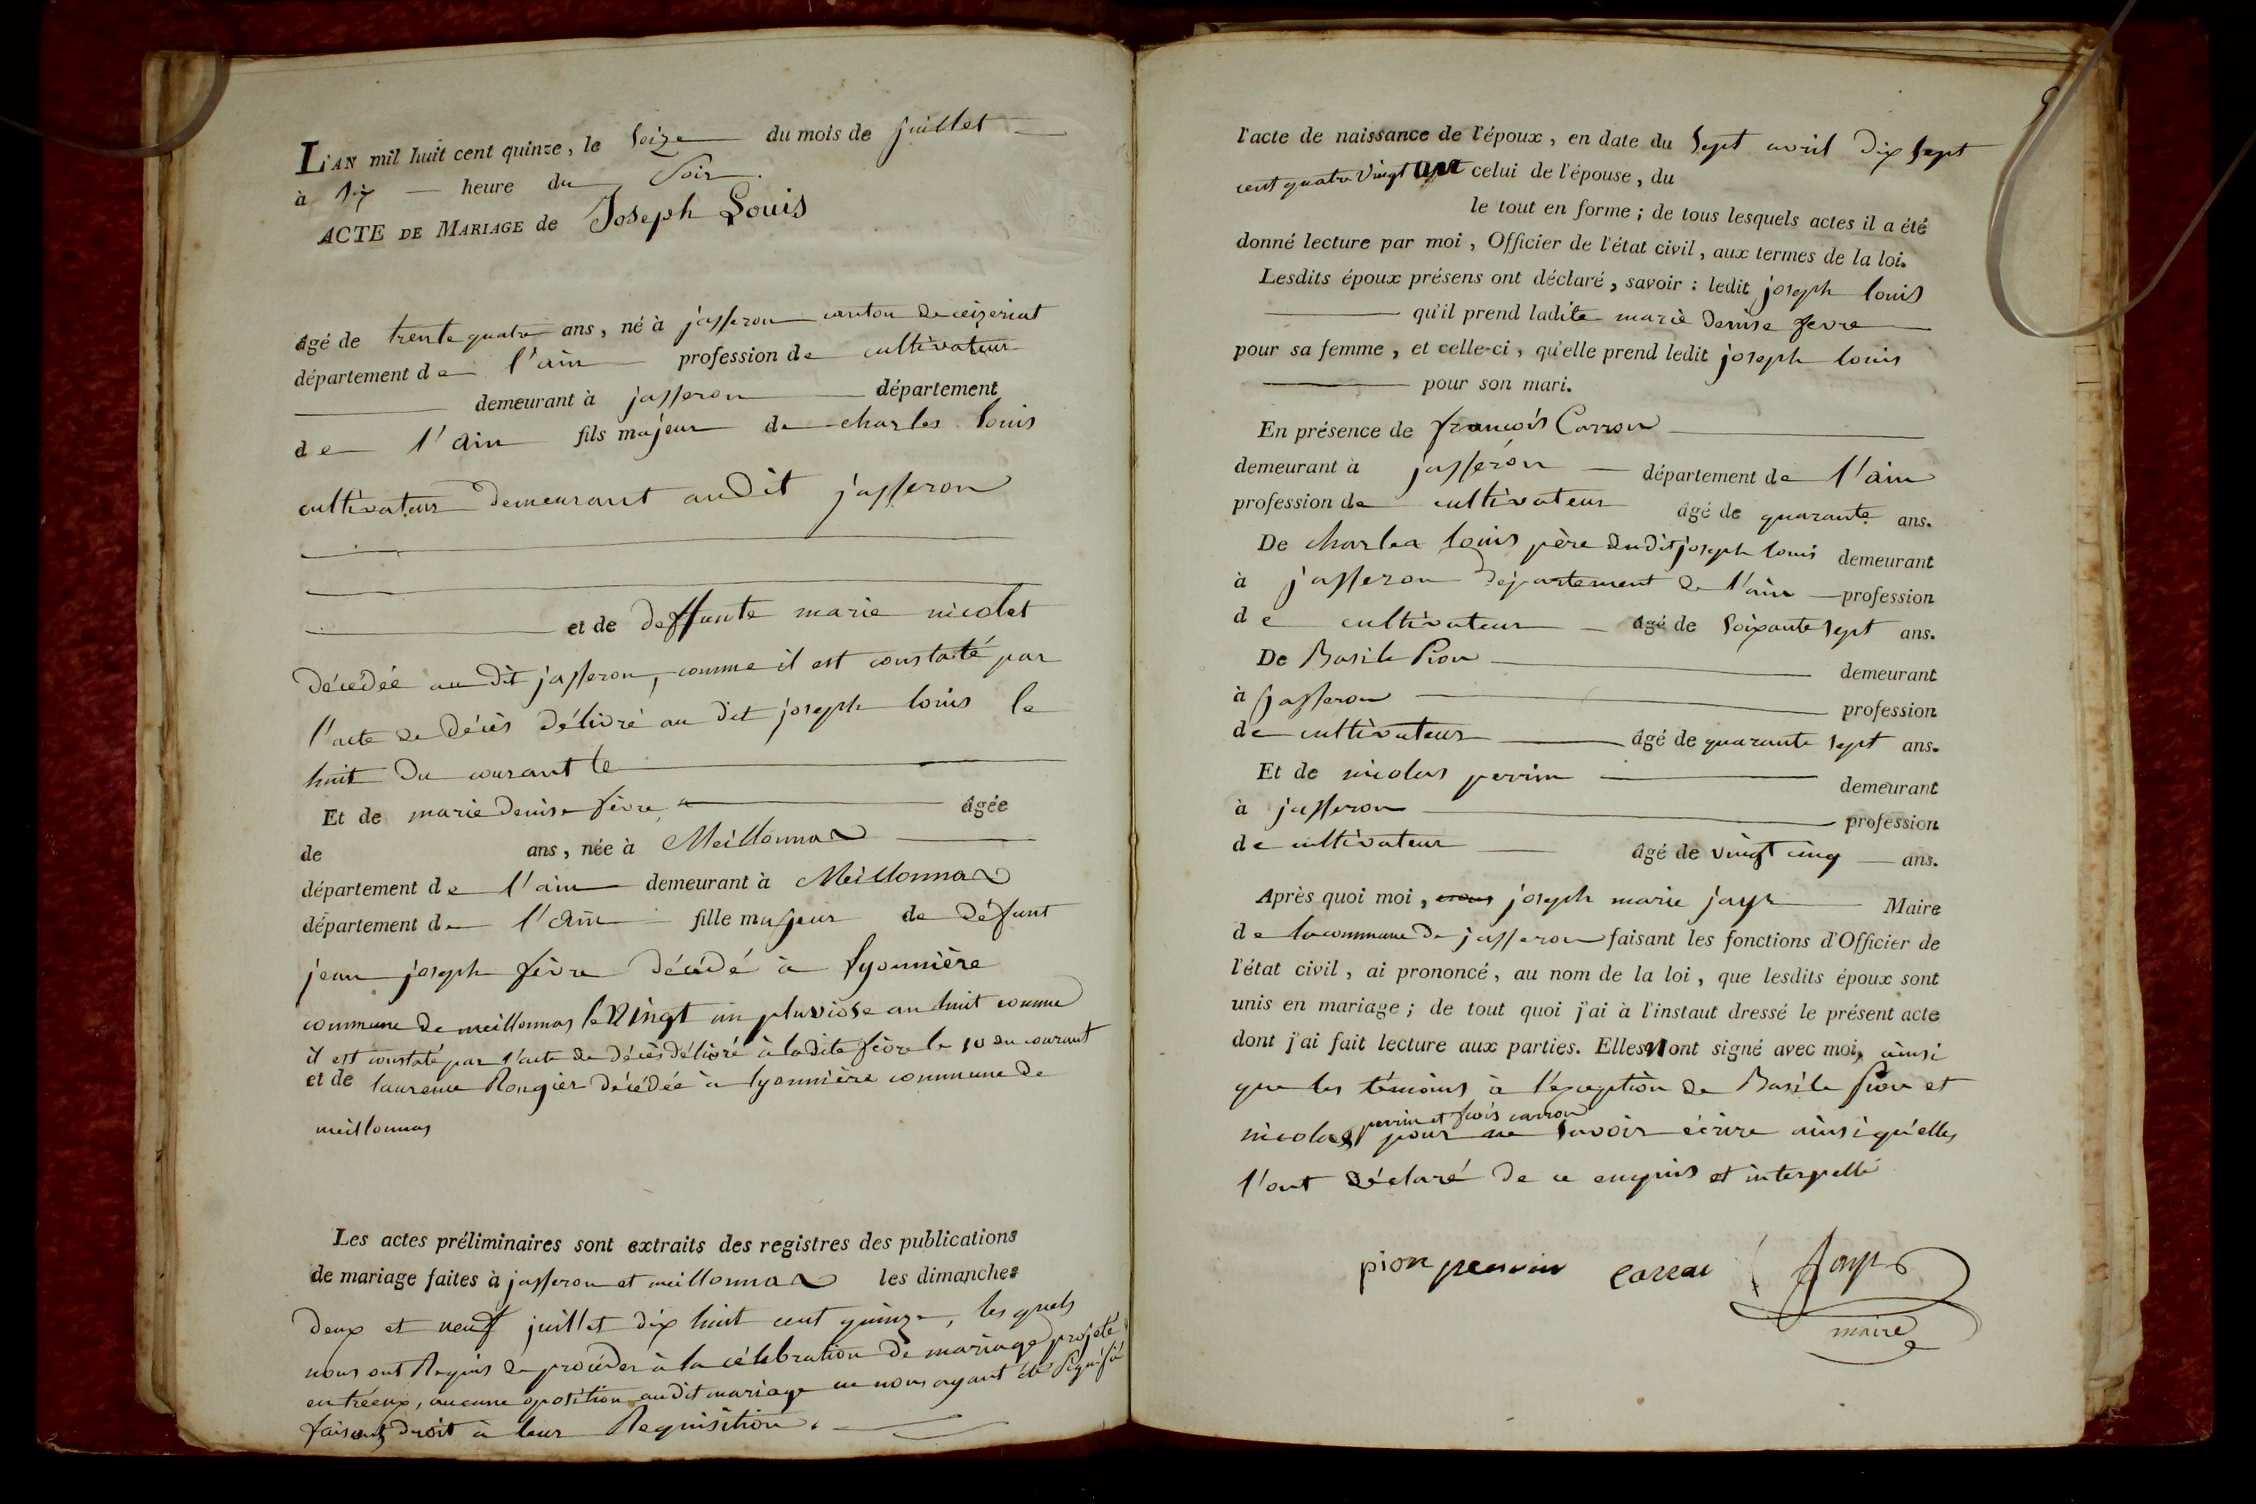 L'AN mil huit cent quinze, le Seize du mois de juillet
à Six heure du Soir.
ACTE DE MARIAGE de Joseph Louis
âgé de trente quatre ans, né à jasseron canton de ceizeriat
département de l'ain profession de cultivateur
demeurant à jasseron département
de l'Ain fils majeur de charles Louis
cultivateur demeurant audit jasseron
et de deffunte marie nicolet
décédée au dit jasseron, comme il est constaté par
l'acte de décès délivré au dit joseph louis le
huit du courant le
Et de marie denise fèvre âgée
de ans, née à Meillonnas
département de l'ain demeurant à Meillonnas
département de l'Ain fille majeur de défunt
jean joseph fèvre décédé à lyonnière
commune de meillonnas le vingt un pluviose an huit comme
il est constaté par l'acte de décès délivré à la dite fèvre le 10 du courant
et de laurence Rongier décédée à lyonnière commune de
meillonnas
Les actes préliminaires sont extraits des registres des publications
de mariage faites à jasseron et meillonnas les dimanches
deux et neuf juillet dix huit cent quinze, les quels
nous ont Requis de procéder à la célébration de mariage projeté
entréeux, aucune oposition audit mariage ne nous ayant été Signifié
faisant droit à leur Requisition.
l'acte de naissance de l'époux, en date du Sept avril dix sept
cent quatre vingt un celui de l'épouse, du
le tout en forme; de tous lesquels actes il a été
donné lecture par moi, Officier de l'état civil, aux termes de la loi.
Lesdits époux présens ont déclaré, savoir: ledit joseph louis
qu'il prend ladite marie denise fevre
pour sa femme, et celle-ci, qu'elle prend ledit joseph louis
pour son mari.
En présence de françois Carron
demeurant à jasseron département de l'ain
profession de cultivateur âgé de quarante ans.
De charles louis père dudit joseph louis demeurant
à jasseron département de l'ain profession
de cultivateur âgé de Soixante sept ans.
De Basile Pion demeurant
à jasseron profession
de cultivateur âgé de quarante sept ans.
Et de nicolas perrin demeurant
à jasseron profession
de cultivateur âgé de vingt cinq ans.
Après quoi moi, joseph marie jayr Maire
de la commune de jasseron faisant les fonctions d'Officier de
l'état civil, ai prononcé, au nom de la loi, que lesdits époux sont
unis en mariage; de tout quoi j'ai à l'instaut dressé le présent acte
dont j'ai fait lecture aux parties. Elles n ont signé avec moi, ainsi
que les témoins à l'éxception de Basile Pion et
perrin et fcois carron
nicolas pour ne Savoir écrire ainsi qu'elles
l'ont déclaré de ce enquis et interpellé
pion perrin caron Jayr
maire